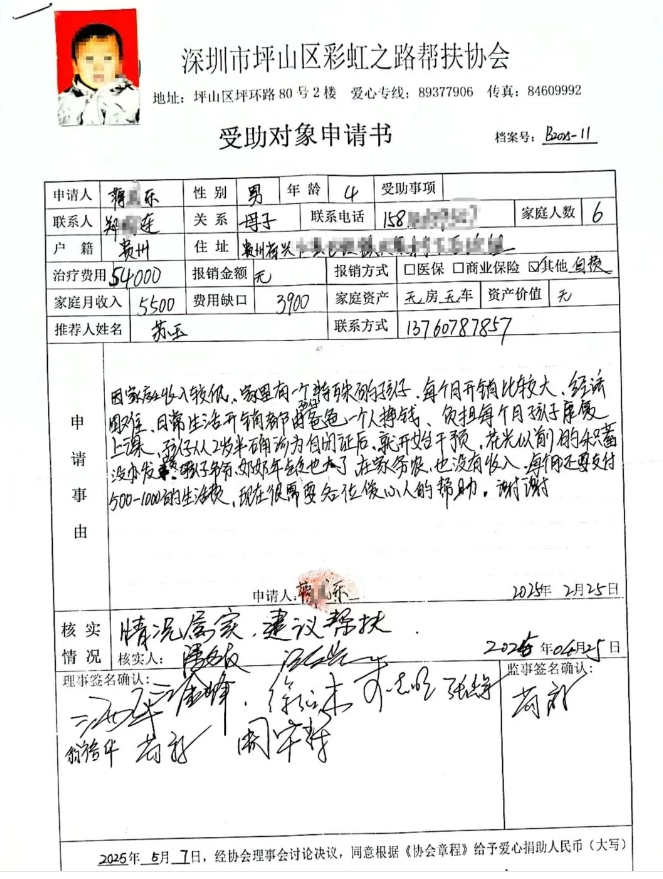 深圳市坪山区彩虹之路帮扶协会
地址：坪山区坪环路80号2楼 爱心专线：89377906 传真：84609992
受助对象申请书
档案号：B2025-11
申请人 蒋 乐 性别 男 年龄 4 受助事项
联系人 郑 莲 关系 母子 联系电话 158 家庭人数 6
户籍 贵州 住址 贵州
治疗费用 54000 报销金额 无 报销方式 □医保 □商业保险 ☑其他 自费
家庭月收入 5500 费用缺口 3900 家庭资产 无房无车 资产价值 无
推荐人姓名 苏玉 联系方式 13760787857
申请事由
因家庭收入较低，家里有一个特殊的孩子，每个月开销比较大，经济
困难，日常生活开销都由爸爸一个人挣钱，负担每个月孩子康复
上课，孩子从2岁半确诊为自闭证后，就开始干预，花光以前的积蓄
没办发 年纪也大了，在家务农，也没有收入，每月还要支付
500-1000的生活费，现在很需要各位爱心人的帮助。谢谢
申请人：蒋 乐 2025年2月25日
核实情况
情况属实，建议帮扶．
核实人： 2025年04月25日
理事签名确认：
监事签名确认：
2025年5月7日，经协会理事会讨论决议，同意根据《协会章程》给予爱心捐助人民币（大写）